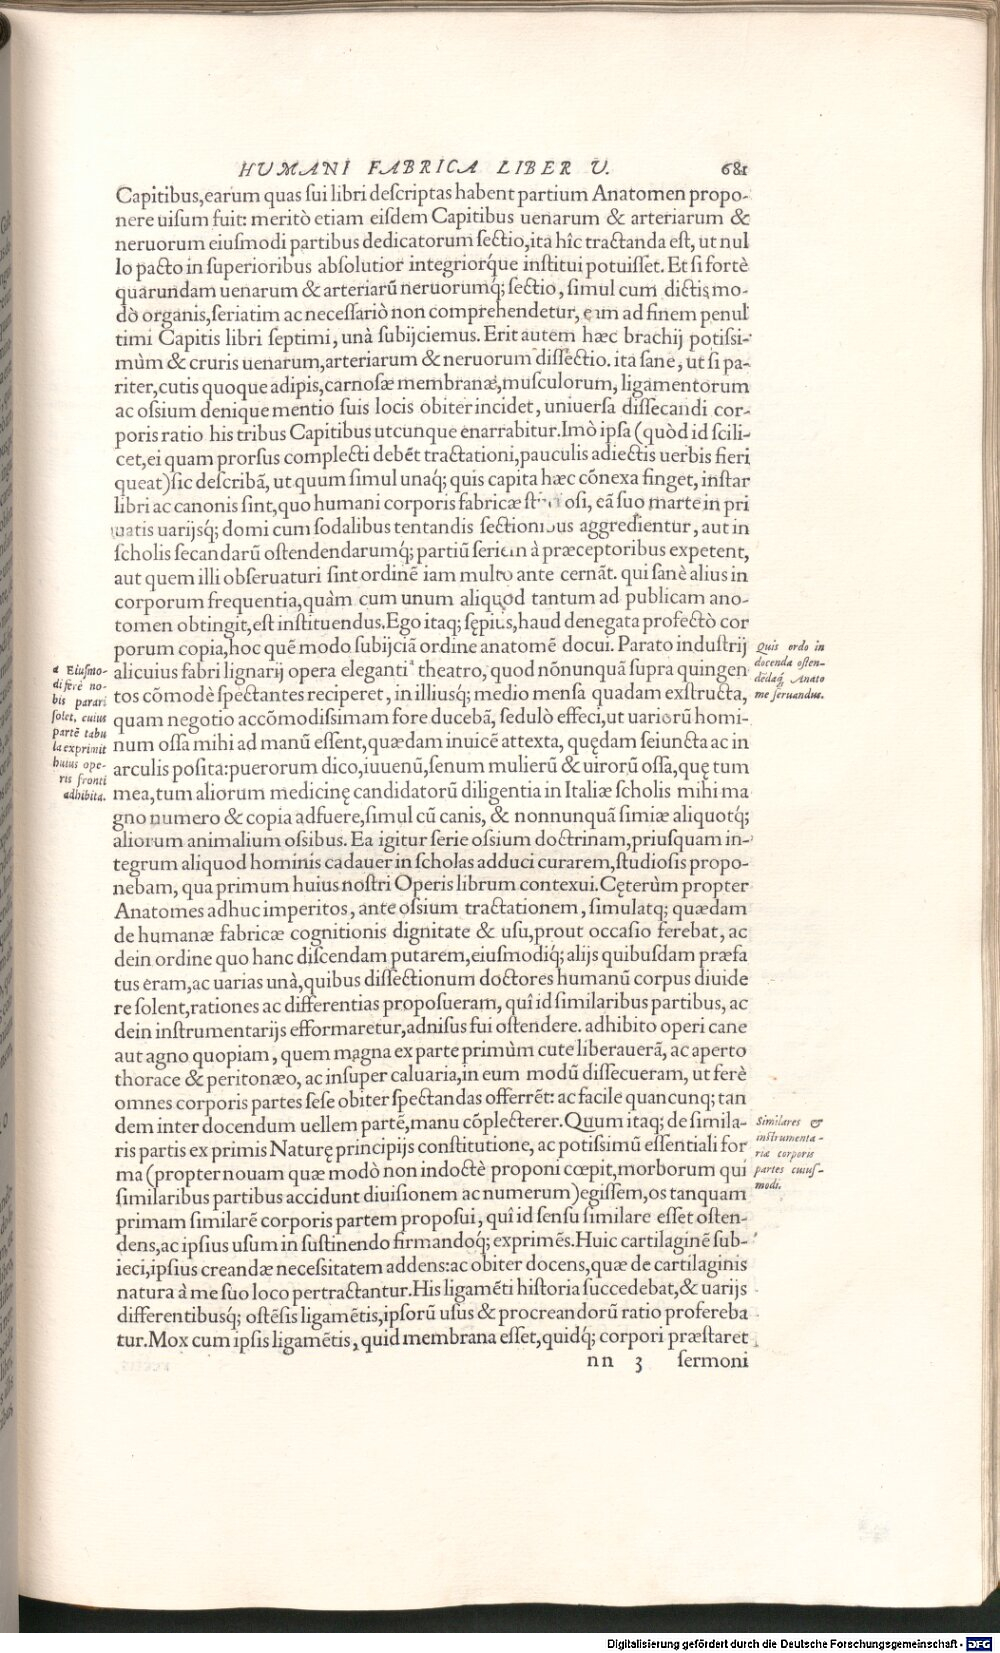 HUMANI FABRICA LIBER V. 681
Capitibus,earum quas sui libri descriptas habent partium Anatomen propo-
nere uisum fuit: meritò etiam eisdem Capitibus uenarum & arteriarum &
neruorum eiusmodi partibus dedicatorum sectio,ita hîc tractanda est, ut nul
lo pacto in superioribus absolutior integriorq́ue institui potuisset. Et si fortè
quarundam uenarum & arteriarũ neruorumq́; sectio, simul cum dictis mo-
dò organis,seriatim ac necessariò non comprehendetur, eam ad finem penul
timi Capitis libri septimi, unà subijciemus. Erit autem hæc brachij potissi-
mùm & cruris uenarum,arteriarum & neruorum dissectio. ita sane, ut si pa-
riter,cutis quoque adipis,carnosæ membranæ,musculorum, ligamentorum
ac ossium denique mentio suis locis obiter incidet, uniuersa dissecandi cor-
poris ratio his tribus Capitibus utcunque enarrabitur.Imò ipsa (quòd id scili-
cet,ei quam prorsus complecti debẽt tractationi,pauculis adiectis uerbis fieri
queat)sic describã, ut quum simul unaq́; quis capita hæc cõnexa finget, instar
libri ac canonis sint,quo humani corporis fabricæ studiosi, eã suo marte in pri
uatis uarijsq́; domi cum sodalibus tentandis sectionibus aggredientur, aut in
scholis secandarũ ostendendarumq́; partiũ seriem à præceptoribus expetent,
aut quem illi obseruaturi sint ordinẽ iam multo ante cernãt. qui sanè alius in
corporum frequentia,quàm cum unum aliquod tantum ad publicam ano-
tomen obtingit,est instituendus.Ego itaq; sępius,haud denegata profectò cor
porum copia,hoc quẽ modo subijciã ordine anatomẽ docui. Parato industrij
alicuius fabri lignarij opera eleganti ᵃ theatro, quod nõnunquã supra quingen
tos cõmodè spectantes reciperet, in illiusq́; medio mensa quadam exstructa,
quam negotio accõmodissimam fore ducebã, sedulò effeci,ut uariorũ homi-
num ossa mihi ad manũ essent,quædam inuicẽ attexta, quędam seiuncta ac in
arculis posita:puerorum dico,iuuenũ,senum mulierũ & uirorũ ossa,quę tum
mea,tum aliorum medicinę candidatorũ diligentia in Italiæ scholis mihi ma
gno numero & copia adfuere,simul cũ canis, & nonnunquã simiæ aliquotq́;
aliorum animalium ossibus. Ea igitur serie ossium doctrinam,priusquam in-
tegrum aliquod hominis cadauer in scholas adduci curarem,studiosis propo-
nebam, qua primum huius nostri Operis librum contexui.Cęterùm propter
Anatomes adhuc imperitos, ante ossium tractationem, simulatq; quædam
de humanæ fabricæ cognitionis dignitate & usu,prout occasio ferebat, ac
dein ordine quo hanc discendam putarem,eiusmodiq́; alijs quibusdam præfa
tus eram,ac uarias unà,quibus dissectionum doctores humanũ corpus diuide
re solent,rationes ac differentias proposueram, quî id similaribus partibus, ac
dein instrumentarijs efformaretur,adnisus fui ostendere. adhibito operi cane
aut agno quopiam, quem magna ex parte primùm cute liberauerã, ac aperto
thorace & peritonæo, ac insuper caluaria,in eum modũ dissecueram, ut ferè
omnes corporis partes sese obiter spectandas offerrẽt: ac facile quancunq; tan
dem inter docendum uellem partẽ,manu cõplecterer.Quum itaq; de simila-
ris partis ex primis Naturę principijs constitutione, ac potissimũ essentiali for
ma (propter nouam quæ modò non indoctè proponi cœpit,morborum qui
similaribus partibus accidunt diuisionem ac numerum)egissem,os tanquam
primam similarẽ corporis partem proposui, quî id sensu similare esset osten-
dens,ac ipsius usum in sustinendo firmandoq́; exprimẽs.Huic cartilaginẽ sub-
ieci,ipsius creandæ necessitatem addens:ac obiter docens,quæ de cartilaginis
natura à me suo loco pertractantur.His ligamẽti historia succedebat,& uarijs
differentibusq́; ostẽsis ligamẽtis,ipsorũ usus & procreandorũ ratio profereba
tur.Mox cum ipsis ligamẽtis, quid membrana esset,quidq́; corpori præstaret
nn 3 sermoni
a Eiusmo-
di ferè no-
bis parari
solet, cuius
partẽ tabu
la exprimit
huius ope-
ris fronti
adhibita.
Quis ordo in
docenda osten-
dẽdaq́; Anato
me seruandus.
Similares &
instrumenta-
riæ corporis
partes cuius-
modi.
Digitalisierung gefördert durch die Deutsche Forschungsgemeinschaft - DFG